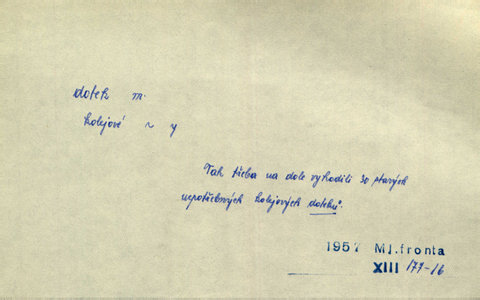 dotek m.
kolejové ~ y
Tak třeba na dole vyhodili 30 starých
nepotřebných kolejových doteků.
1957 Ml.fronta
XIII 177-16